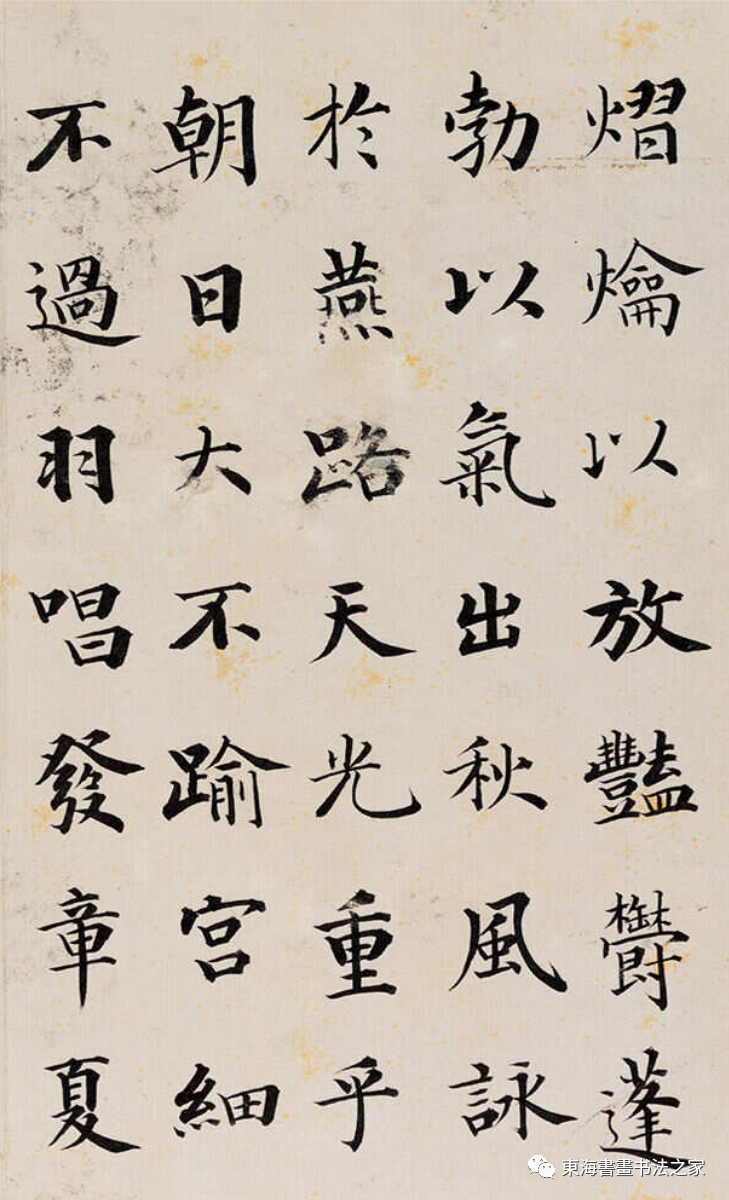 熠爚以放豔鬱蓬
勃以氣出秋風詠
於燕路天光重乎
朝日大不踰宮細
不過羽唱發章夏
東海書畫书法之家